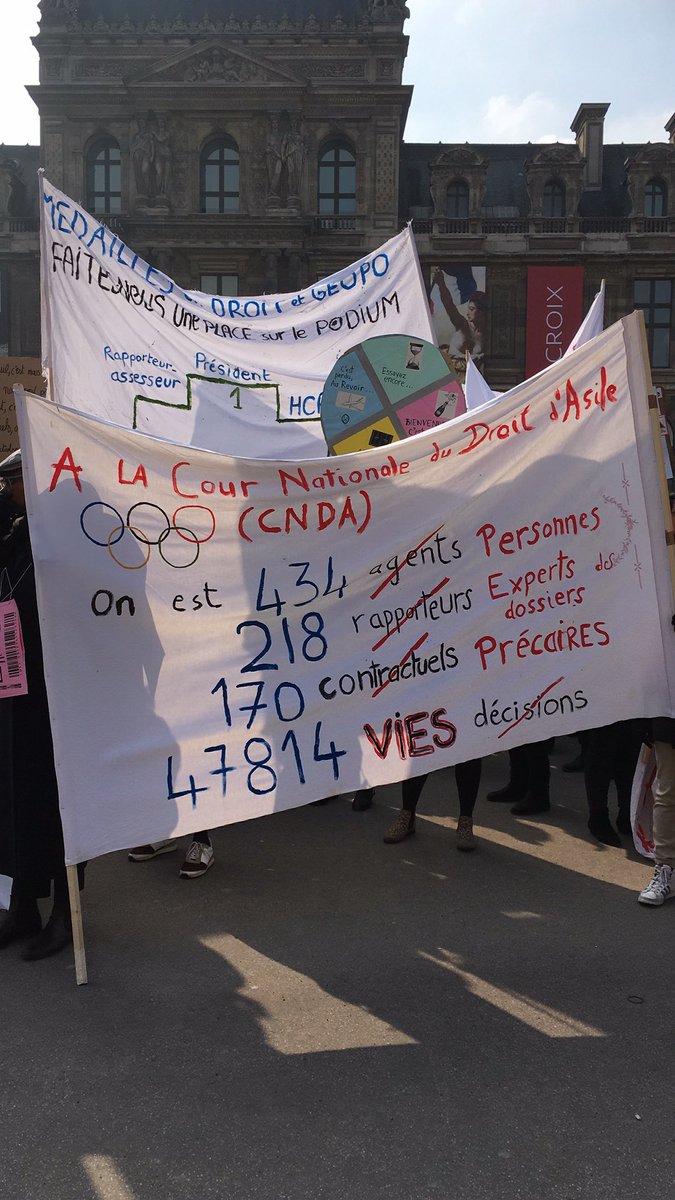 MEDAILLES DROIT et GEOPO
FAITES NOUS UNE PLACE sur le PODIUM
Rapporteur-
assesseur
Président
1
HCR
C'est
perdu,
Au Revoir...
Essayez
encore...
BIENVENUE
CROIX
A LA Cour Nationale du Droit d'Asile
(CNDA)
On est 434 agents Personnes
218 rapporteurs Experts des
dossiers
170 contractuels Précaires
47814 VIES décisions